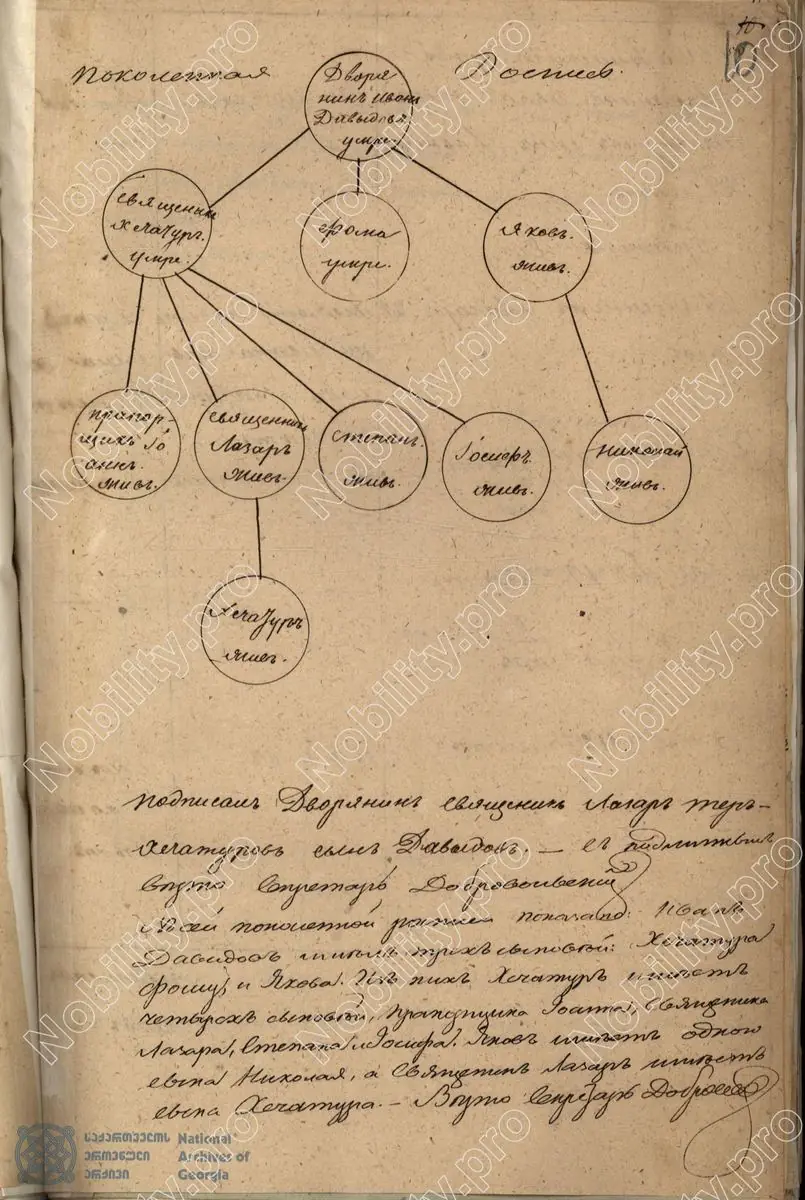 10
Поколенная Роспись.
Дворя
нинъ Иванъ
Давыдовъ
умре.
Священникъ
Хечатуръ.
умре.
Фома
умре.
Яковъ.
живъ.
Прапор-
щикъ Іо
аннъ.
живъ.
Священникъ
Лазаръ
живъ.
Степанъ.
живъ.
Іосифъ.
живъ.
Николай
живъ.
Хечатуръ
живъ.
Подписалъ Дворянинъ Священикъ Лазаръ теръ-
Хечатуровъ сынъ Давыдовъ. — Съ подлиннымъ
вѣрно Секретарь Добровольскій
Въ сей поколенной росписи показано: Иванъ
Давыдовъ имѣлъ трехъ сыновей: Хечатура
Фому, и Якова. Изъ нихъ Хечатуръ имѣетъ
четырехъ сыновей, Прапорщика Іоанна, Священника
Лазара, Степана и Іосифа. Яковъ имѣетъ одного
сына Николая, а Священникъ Лазаръ имѣетъ
сына Хечатура. — Вѣрно Секретарь
საქართველოს
ეროვნული
არქივი
National
Archives of
Georgia
Nobility.pro